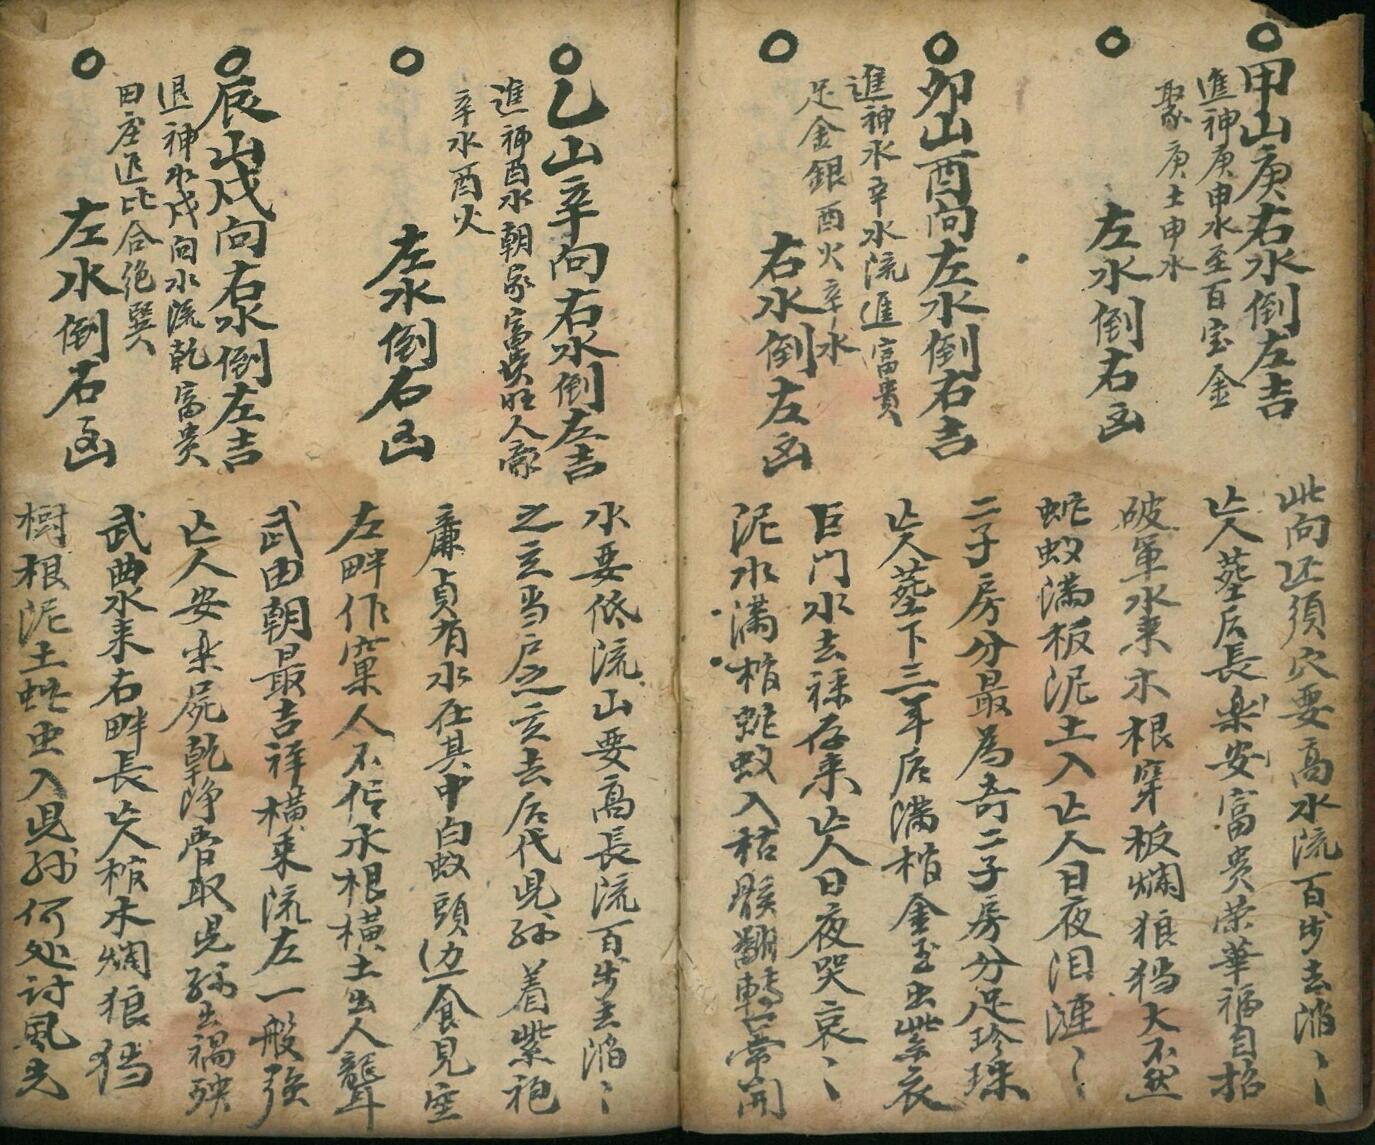 甲山庚右水倒左吉
進神庚申水至百宝金
聚庚土申水
左水倒右凶
卯山酉向左水倒右吉
進神水辛水流進富貴
足金銀酉火辛水
右水倒左凶
此向还須穴要高水流百步去滔〻
亡人塟后長楽安富贵荣華福自招
破軍水来木根穿板爛狼犺大不然
蛇蚁满板泥土入亡人日夜泪漣〻
二子房分最為奇二子房分足珍珠
亡人塟下三年后满棺金玉出紫衣
巨门水去禄存来亡人日夜哭哀〻
泥水满棺蛇蚁入枯骸翻轉常開
乙山辛向右水倒左吉
進神酉水朝家富贵旺人家
辛水酉火
左水倒右凶
辰山戌向右水倒左吉
退神水戌向水流乾富贵
田庄退比合绝巽
左水倒右凶
水要低流山要高長流百步去滔〻
之玄当户之玄去后代児孙着紫袍
廉貞有水在其中白蚁頭边食見空
左畔作窠人不信木根横土出人聾
武曲朝最吉祥横来流左一般强
亡人安楽屍乾浄骨取児孙出禍殃
武曲水来右畔長亡人棺木爛狼犺
樹根泥土蛇虫入児孙何处讨風光